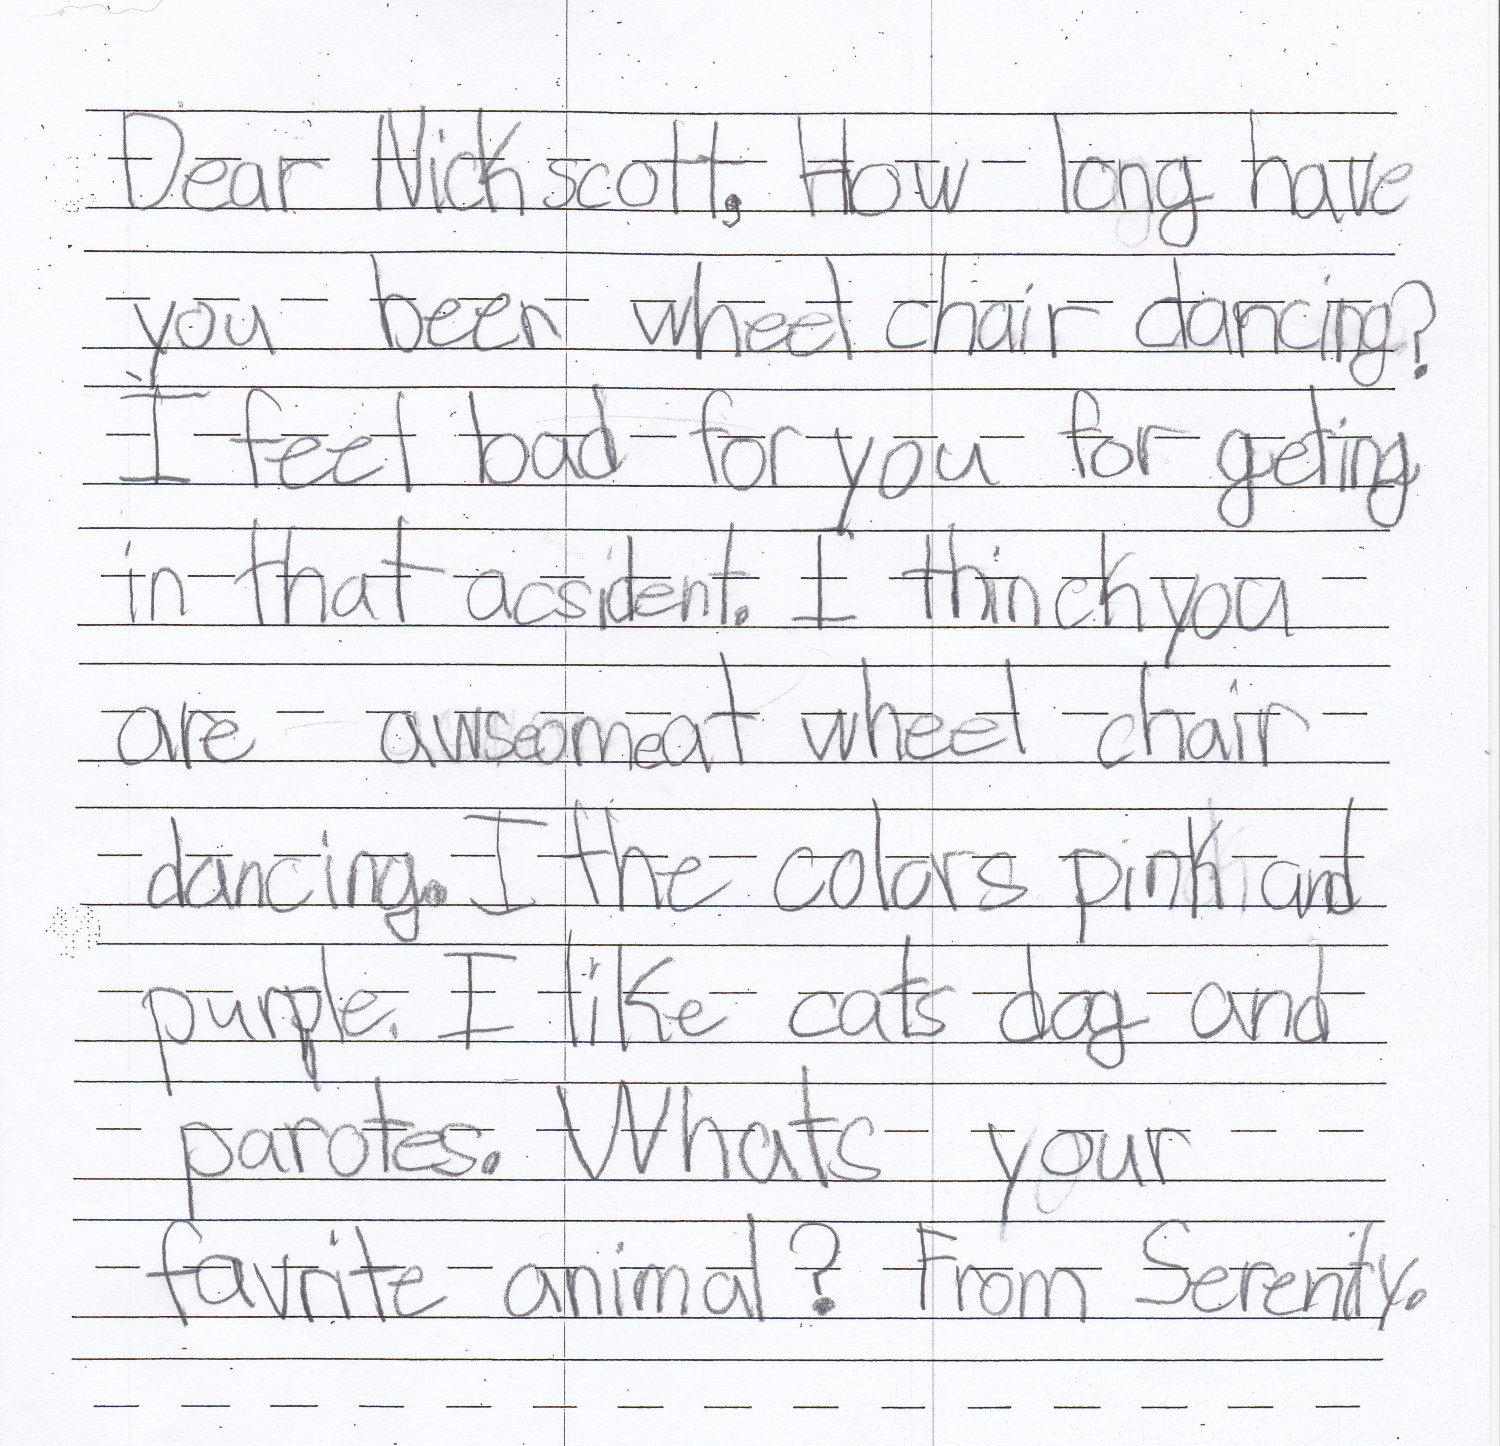 Dear Nick scott, How long have
you been wheel chair dancing?
I feel bad for you for geting
in that acsident. I thinck you
are awseome at wheel chair
dancing. I the colors pink and
purple. I like cats dog and
parotes. Whats your
favrite animal? From Serenity.